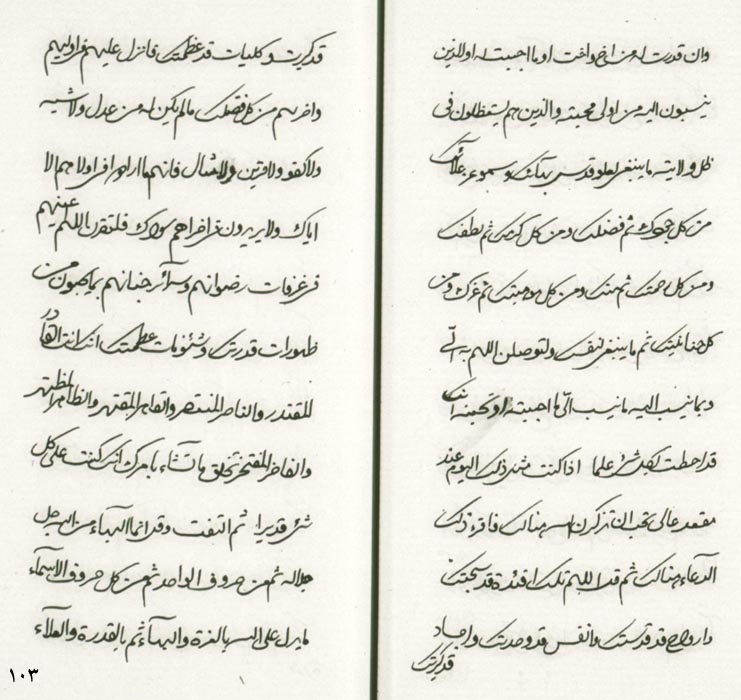 وان قدرت له من اخ واخت او ما احببت له اولئك الذين
ينسبون اليه من اولى محبته والذين هم يستظلون فى
ظل ولايته ما ينبغى لعلو قدس بهائك وسمو عز علائك
من كل جودك ثم فضلك ومن كل كرمك ثم لطفك
ومن كل رحمتك ثم منك ومن كل موهبتك ثم عزك ومن
كل غنائيتك ثم ما ينبغى لنفسك ولتوصلن اللهم به الّى
وبما ينسب اليه ما ينسب الّى ما احببته او تحبنه انك
قد احطت بكل شئ علما اذا كنت مثل ذلك اليوم عند
مقعد عالى تحب ان تذكرن اسم هنالك فاقرء ذلك
الدعاء هنالك ثم قل اللهم تلك افئدة قد سبحتك
وارواح قد قدستك وانفس قد وحدتك واجساد
قد كبرتك
قد كبرتك وكليات قد عظمتك فانزل عليهم فى اوليهم
واخريهم من كل فضلك ما لم يكن له من عدل ولا شبه
ولا كفو ولا قرين ولا مثال فانهم ما ارادوا فى اولاهم الا
اياك ولا يريدون فى اخراهم سواك فلتقرن اللهم عينهم
فى غرفات رضوانهم وسرآئر جنانهم بما يحبون من
ظهورات قدرتك وشئونات عظمتك انك انت القادر
المقتدر والناصر المنتصر والقاهر المقتهر والظاهر المظتهر
والفاخر المفتخر تخلق ما تشاء بامرك انك كنت على كل
شئ قديرا ثم التفت وقل انما البهاء من الله جل
جلاله ثم من حروف الواحد ثم من كل حروف الاسماء
لم يزل على السر بالعزة والبهآء ثم بالقدرة والعلآء
١٠٣